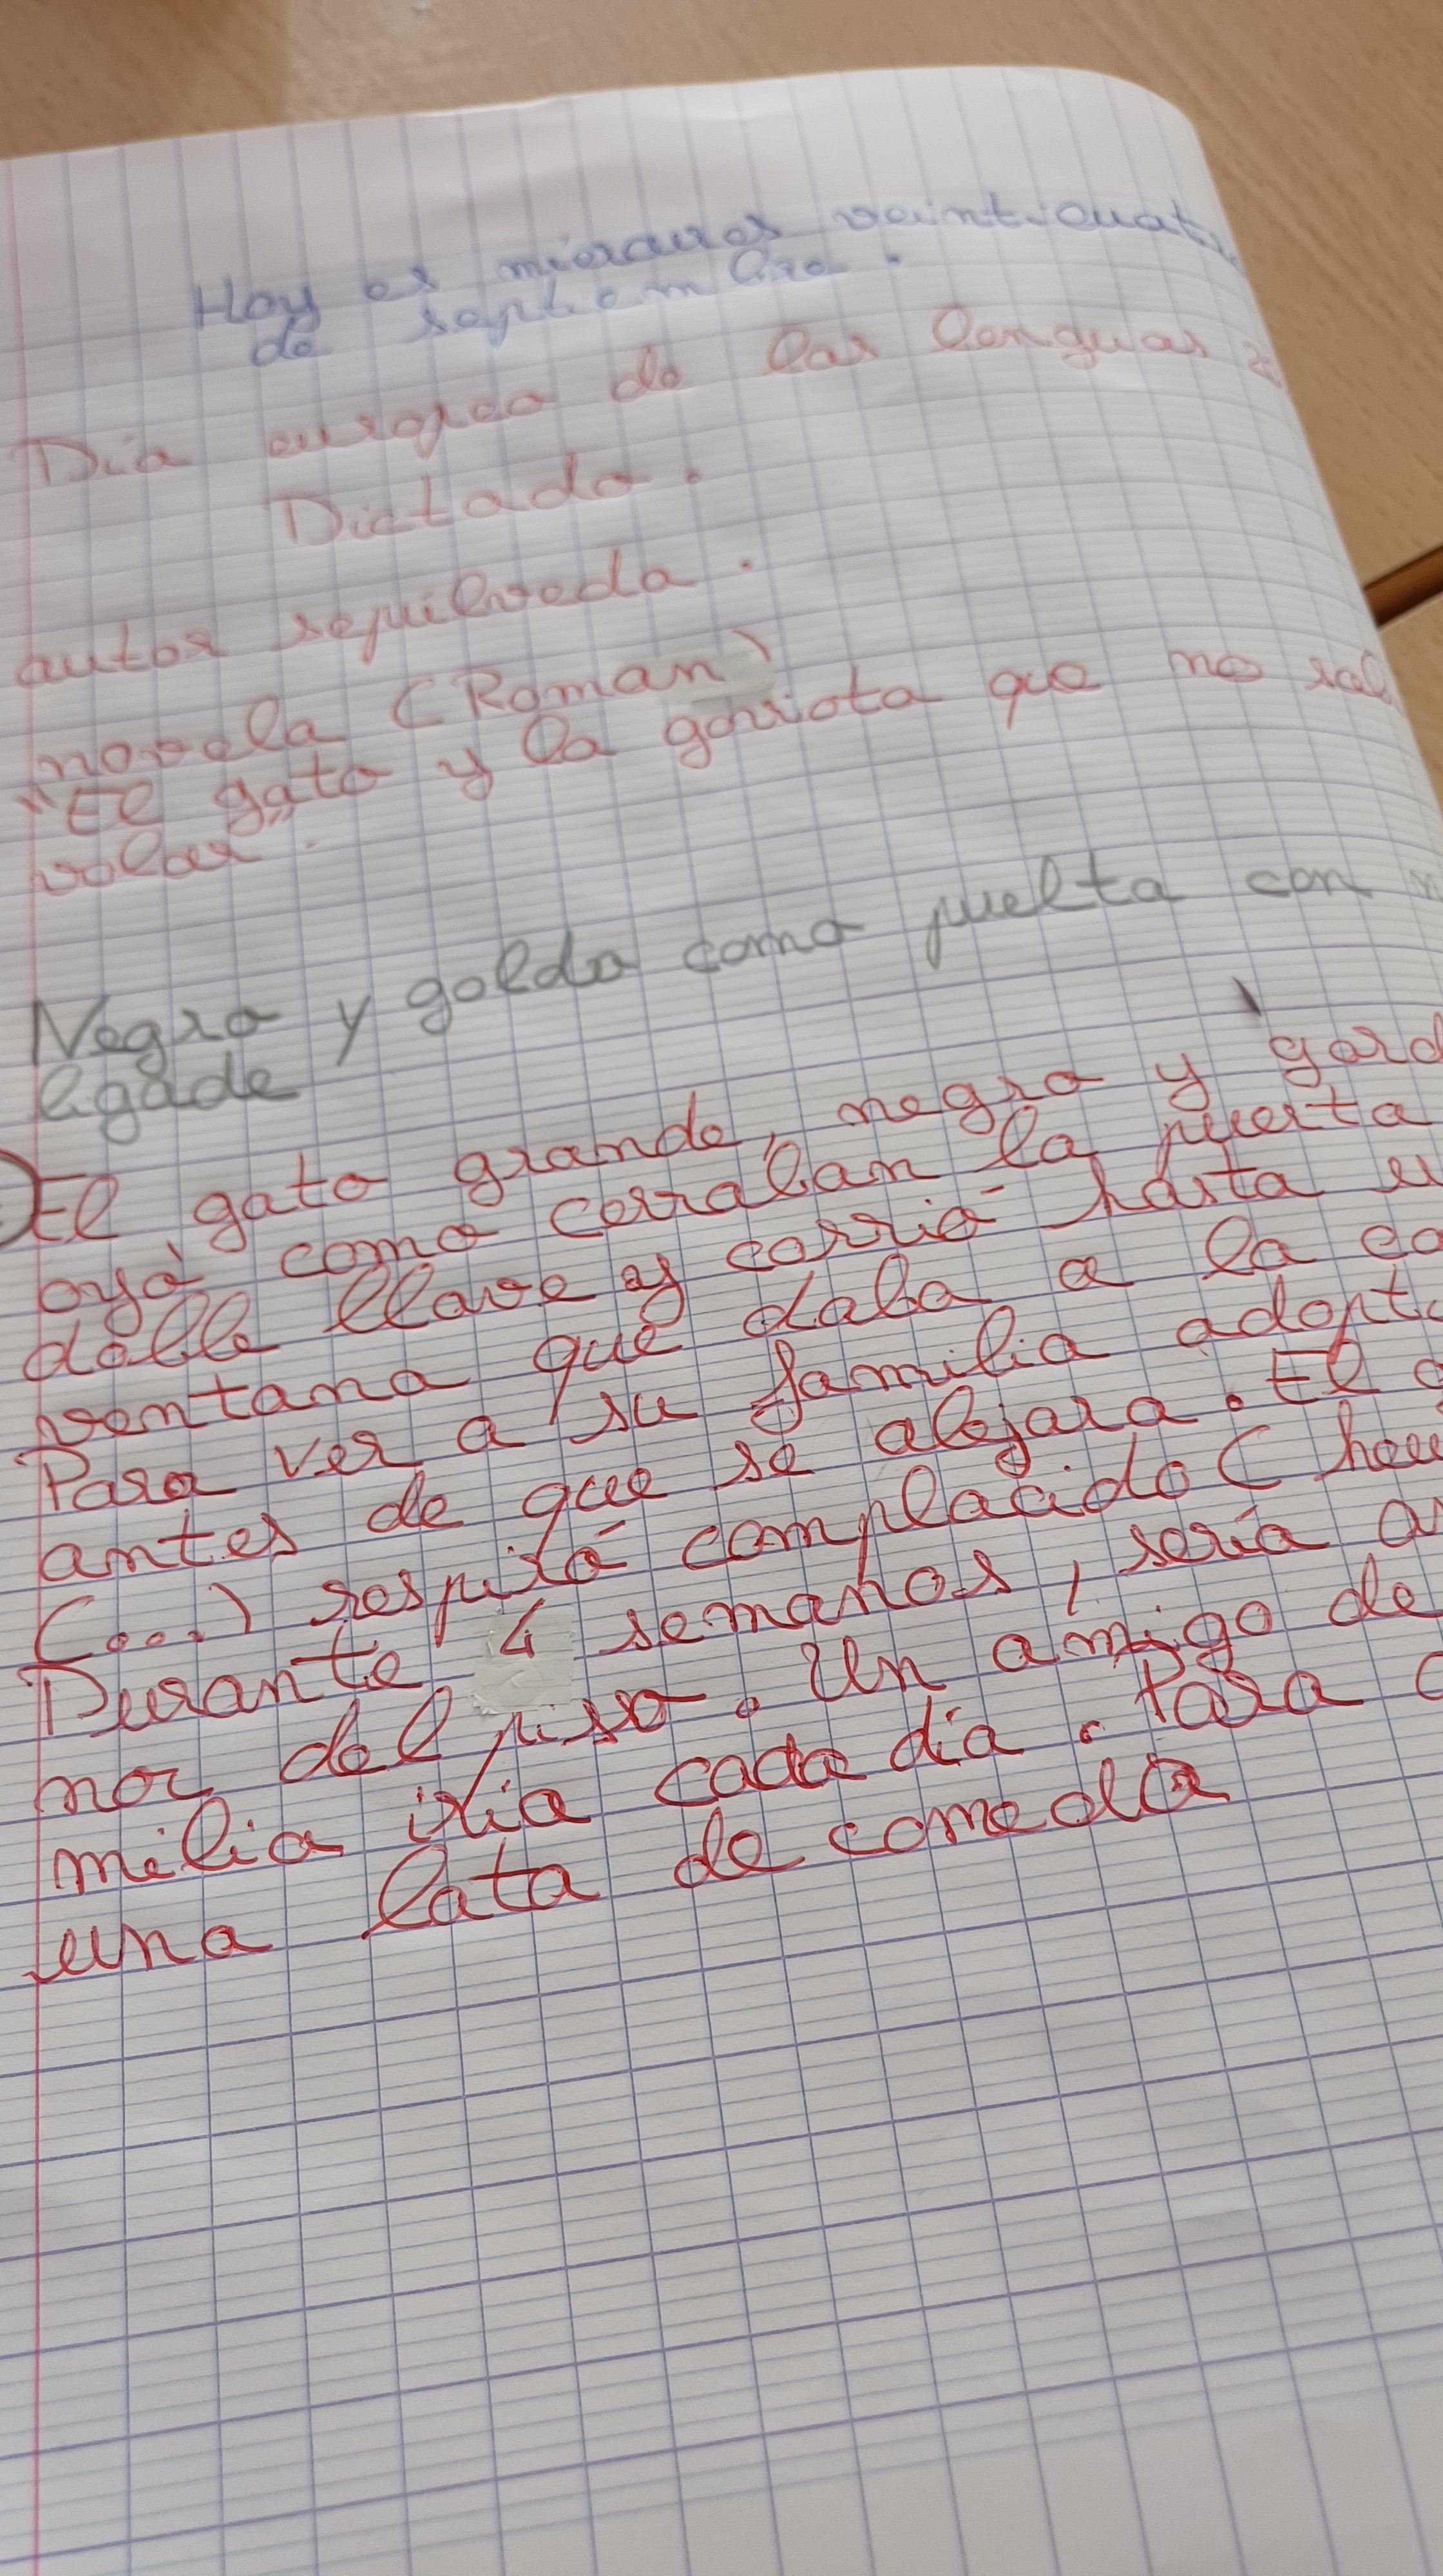 Hoy es miercures veinticuat
de septiembre.
Dia europeo de las lenguas
Dictado.
autor sepulveda.
novela (Roman)
"El gato y la gaviota que no sab
volar".
Negro y goldo como puelta con
ligade
El gato grande, negro y gord
oyó como cerraban la puerta
doble llave y corrió hasta u
ventana que daba a la ca
Para ver a su familia adopt
antes de que se alejara. El g
(...) respiró complacido ( heu
Durante 4 semanas, sería a
nor del piso. Un amigo de
milia iria cada día. Para a
una lata de comeda